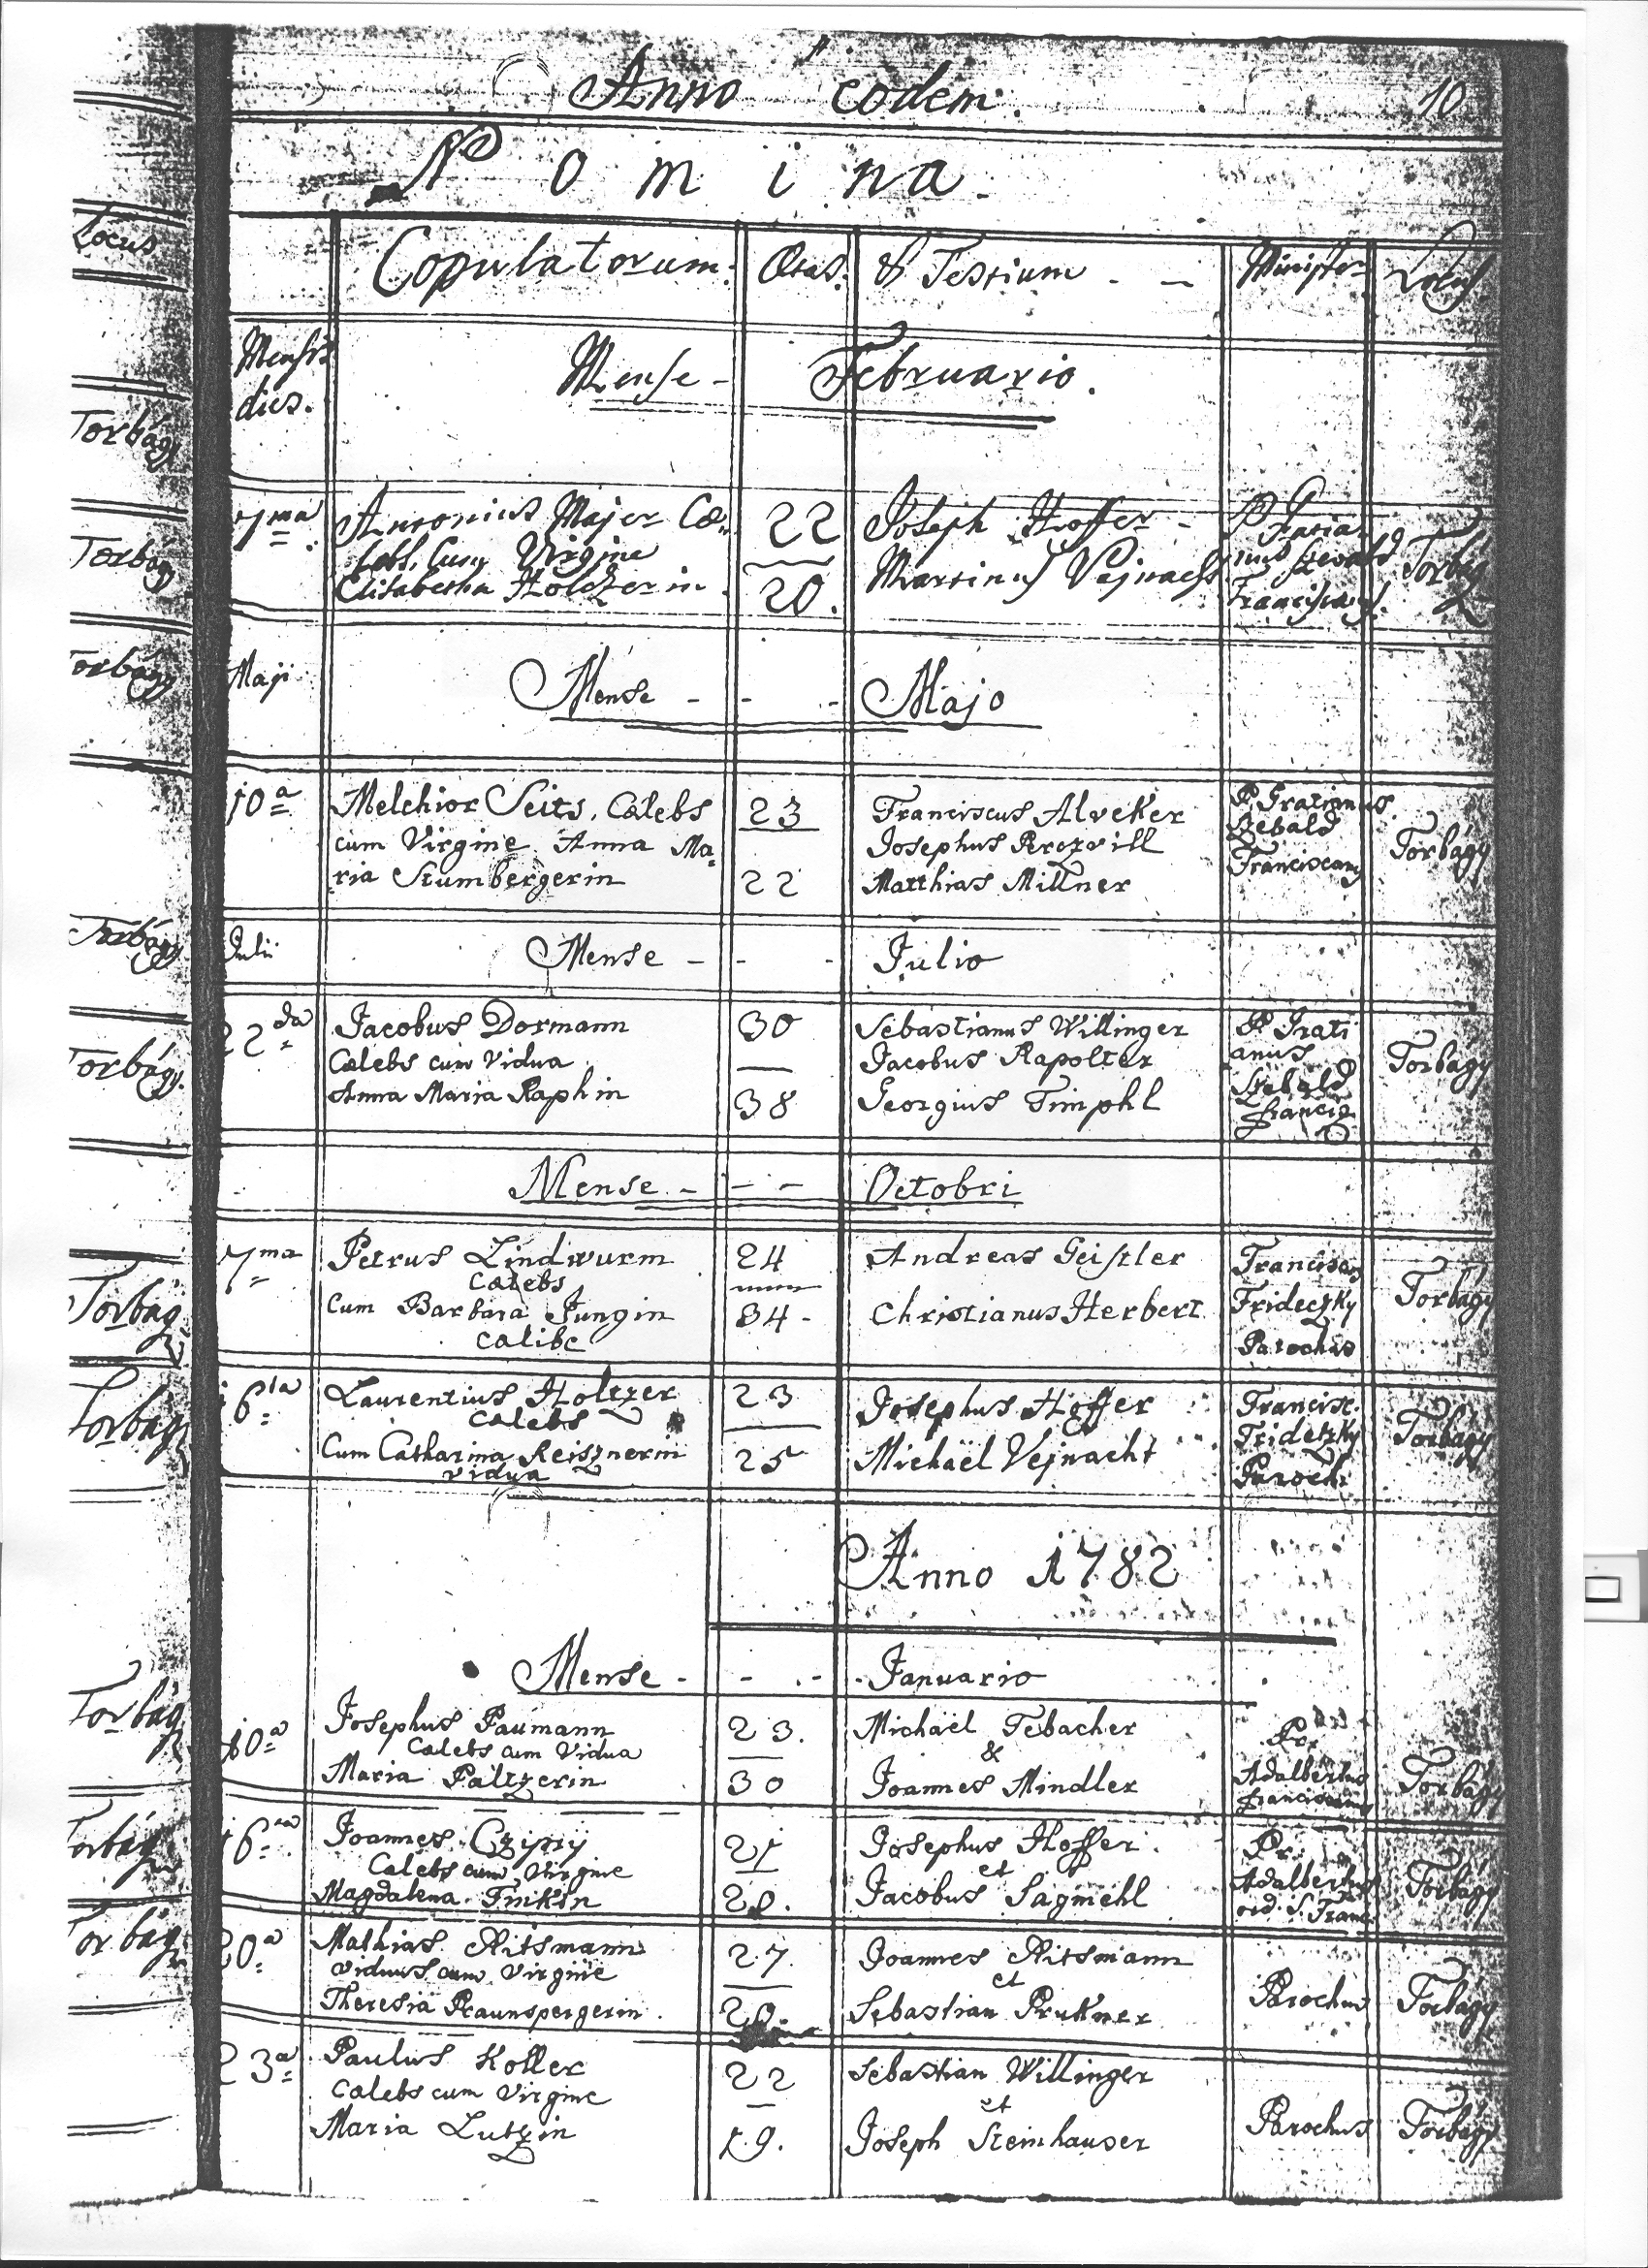 Anno eodem. 10
Nomina
Locus
Copulatorum. Ætas. & Testium - - Minister Locus
Mensis
dies.
Mense - Februario.
Torbágy
7ma Antonius Majer Cæ- 22 Joseph Hoffer - P.
lebs, Cum Virgine Torbágy
Elisabetha Holczerin 20. Martinus Vejnacht Franciscan.
Torbágy
Maji Mense - - - Majo
Torbágy
10a Melchior Seits, Cælebs 23 Franciscus Alveker P. Gratianus
cum Virgine Anna Ma- Josephus Szebald Torbágy
ria Stumbergerin 22 Matthias Millner Franciscany
Torbágy
Julii Mense - - - Julio
22da Jacobus Dormann 30 Sebastianus Willinger P. Grati
Cælebs cum Vidua Jacobus Rapolter anus Torbágy
Anna Maria Raphin 38 Georgius Timphl Szebald
Torbágy francis
Mense - - - Octobri
7ma Petrus Lindwurm 24 Andreas Geistler Franciscus
Cælebs
Cum Barbara Jungin 34 - Christianus Herbert Frideczky Torbágy
Cælibe Parochus
Torbágy
16ta Laurentius Holtzer 23 Josephus Hoffer Francisc.
Cælebs Fridetzky Torbágy
Cum Catharina Reisznerin 25 Michaël Vejnacht Paroch.
vidua
Torbágy
Anno 1782
Mense - - - Januario
Torbágy
10a Josephus Paumann 23. Michaël Tebacher Pr.
Cælebs cum Vidua & Adalbertus Torbágy
Maria Paltzerin 30 Joannes Mindler franciscany
Torbágy
16ta Joannes 21 Josephus Hoffer. Pr.
Cælebs cum Virgine et Adalbertus Torbágy
Magdalena Finkin 20. Jacobus Sagmehl ord. S. Franc.
Torbágy
20a Mathias Ritsmann 27. Joannes Ritsmann
viduus cum Virgine et Parochus Torbágy
Theresia Praunspergerin. 20. Sebastian Prukner
23a Paulus Koller 22 Sebastian Willinger
Cælebs cum Virgine et Parochus Torbágy
Maria Lutzin 19. Joseph Steinhauser